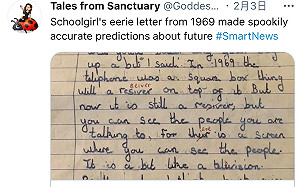 Tales from Sanctuary @Goddes... · 2月3日
Schoolgirl's eerie letter from 1969 made spookily
accurate predictions about future #SmartNews
up a bit" I said. In 1969 the
telephone was a square box thing
will a resiver on top of it But
now it is still a resiver, but
you can see the people you are
talking to, For their is a screen
where you can see the people.
It is a bit like a television.